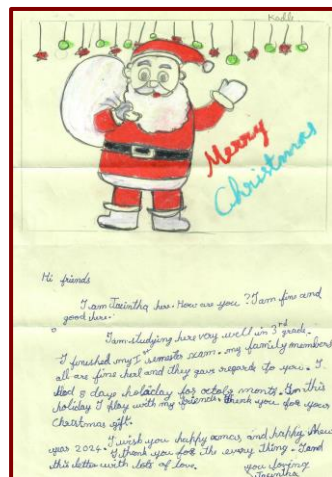 Merry
Christmas
Hi friends
I am Jacintha here. How are you? I am fine and
good here.
I am studying here very well in 3rd grade.
I finished my I semester exam. my family members
all are fine here and they gave regards to you. I
had 8 days holiday for october month. In this
holiday I play with my friends. thank you for your
Christmas gift.
I wish you happy xmas and happy New
year 2024. I thank you for the every thing. I end
this letter with lots of love.
you loving
Jacintha